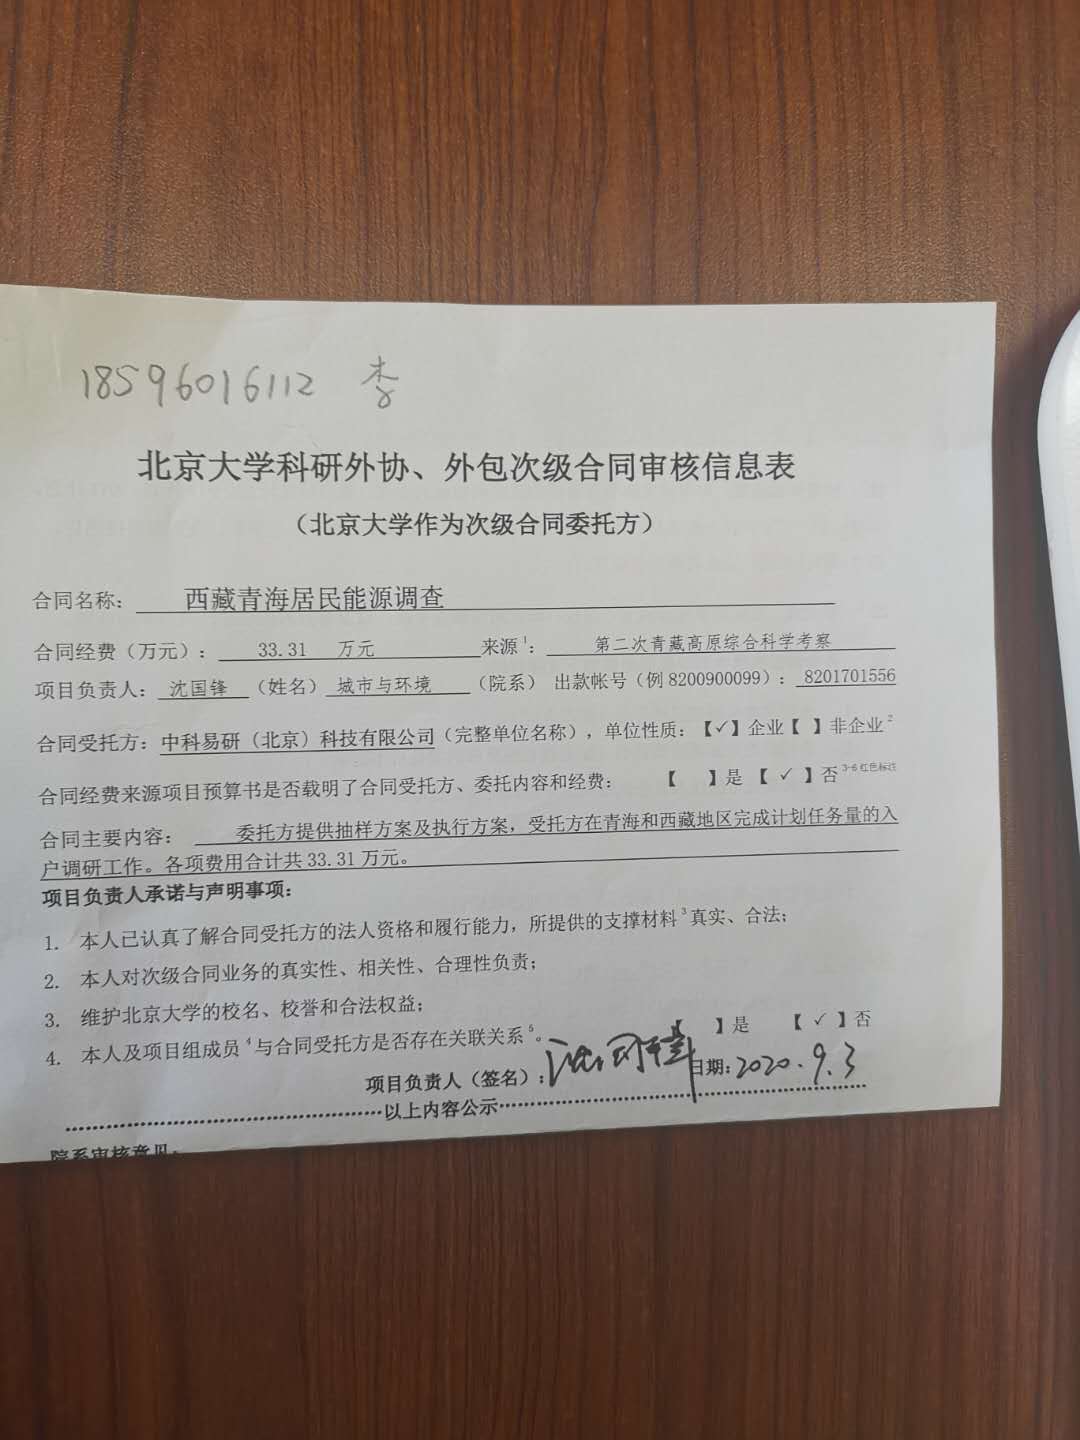 18596016112 李
北京大学科研外协、外包次级合同审核信息表
（北京大学作为次级合同委托方）
合同名称： 西藏青海居民能源调查
合同经费（万元）： 33.31 万元 来源1： 第二次青藏高原综合科学考察
项目负责人： 沈国锋 （姓名） 城市与环境 （院系） 出款帐号（例 8200900099）： 8201701556
合同受托方：中科易研（北京）科技有限公司（完整单位名称），单位性质：【✓】企业【 】非企业2
合同经费来源项目预算书是否载明了合同受托方、委托内容和经费： 【 】是 【 ✓ 】否 3-6 红色标注
合同主要内容： 委托方提供抽样方案及执行方案，受托方在青海和西藏地区完成计划任务量的入
户调研工作。各项费用合计共 33.31 万元。
项目负责人承诺与声明事项：
1. 本人已认真了解合同受托方的法人资格和履行能力，所提供的支撑材料3真实、合法；
2. 本人对次级合同业务的真实性、相关性、合理性负责；
3. 维护北京大学的校名、校誉和合法权益；
4. 本人及项目组成员4与合同受托方是否存在关联关系5。 【 】是 【 ✓ 】否
项目负责人（签名）：沈国锋 日期：2020.9.3
以上内容公示
院系审核意见：